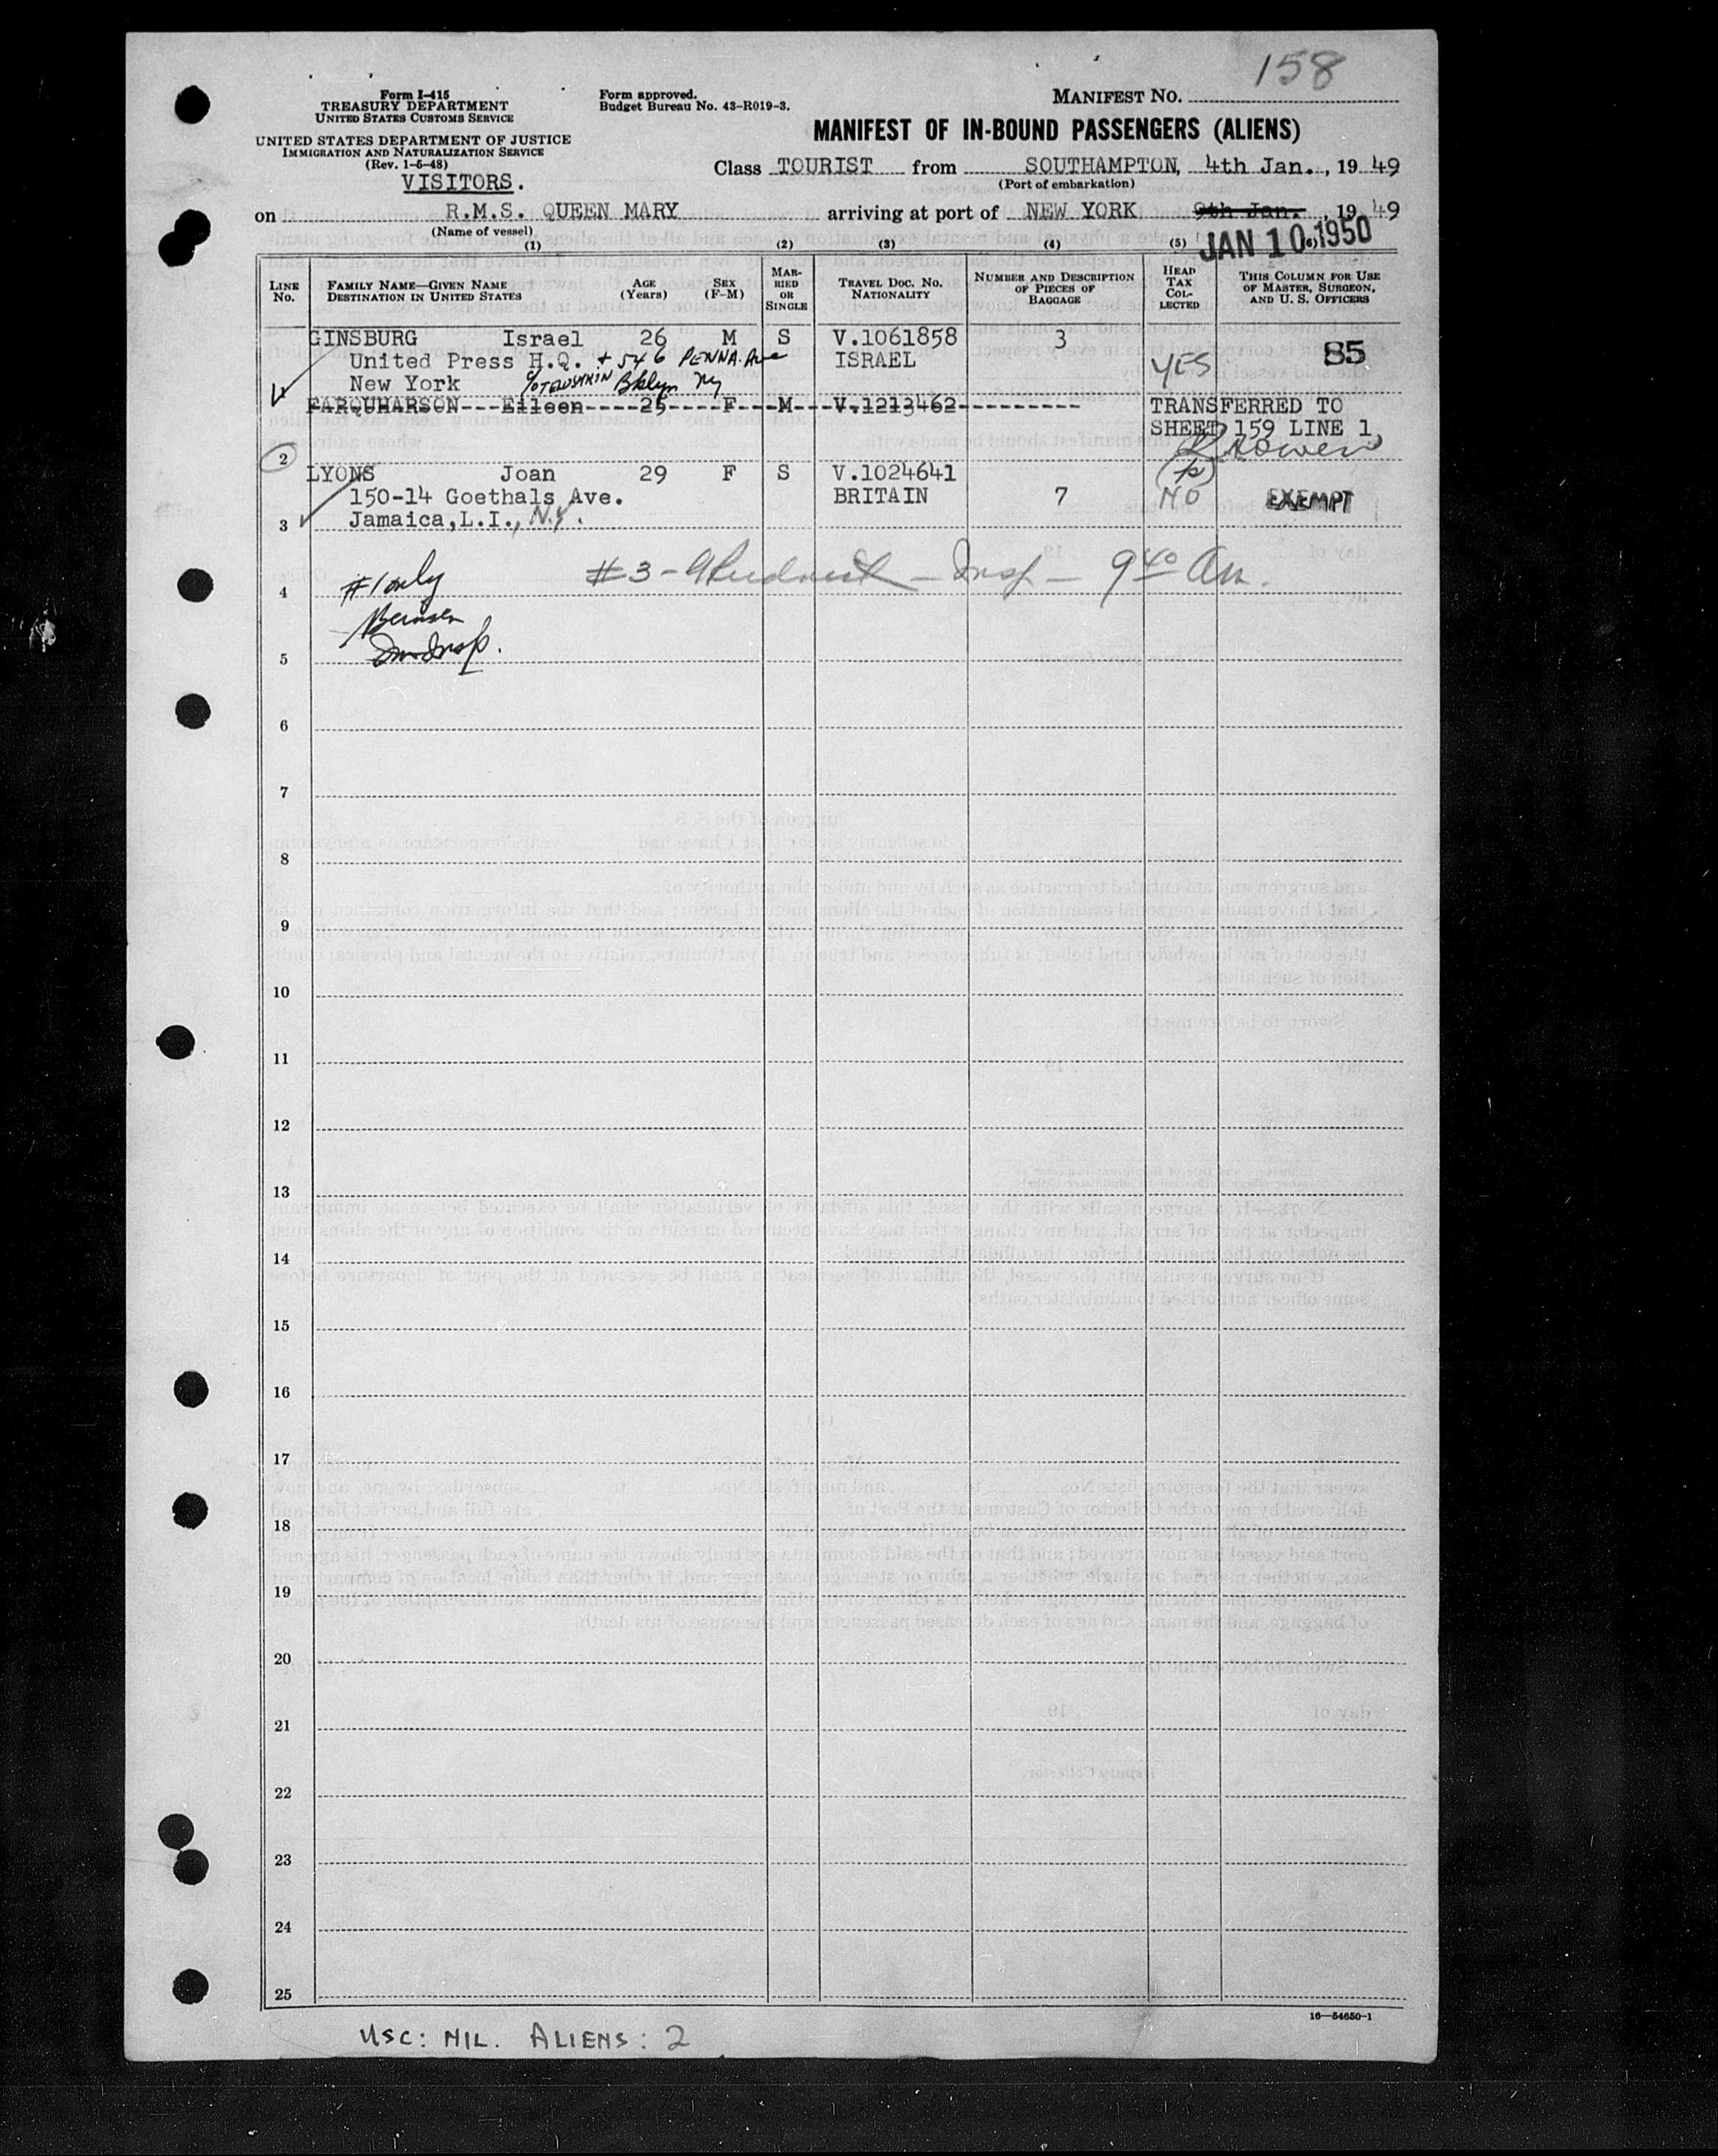 158
Form I-415
TREASURY DEPARTMENT
UNITED STATES CUSTOMS SERVICE
UNITED STATES DEPARTMENT OF JUSTICE
IMMIGRATION AND NATURALIZATION SERVICE
(Rev. 1-5-48)
VISITORS.
Form approved.
Budget Bureau No. 43-R019-3.
MANIFEST NO.
MANIFEST OF IN-BOUND PASSENGERS (ALIENS)
Class TOURIST from SOUTHAMPTON, 4th Jan., 1949
(Port of embarkation)
on R.M.S. QUEEN MARY arriving at port of NEW YORK 9th Jan., 1949
(Name of vessel)
JAN 10 1950
(1) (2) (3) (4) (5) (6)
LINE No.
FAMILY NAME—GIVEN NAME
DESTINATION IN UNITED STATES
AGE (Years)
SEX (F-M)
MARRIED OR SINGLE
TRAVEL DOC. NO.
NATIONALITY
NUMBER AND DESCRIPTION OF PIECES OF BAGGAGE
HEAD TAX COLLECTED
THIS COLUMN FOR USE OF MASTER, SURGEON, AND U. S. OFFICERS
GINSBURG Israel 26 M S V.1061858 3
United Press H.Q. + 546 PENNA. Ave ISRAEL YES 85
New York Bklyn Ny
FARQUHARSON---Eileen----25----F--M---V.1213462---------- TRANSFERRED TO
SHEET 159 LINE 1
2
LYONS Joan 29 F S V.1024641
150-14 Goethals Ave. BRITAIN 7 NO EXEMPT
3 Jamaica,L.I., N.Y.
#1 only
#3 - Insp - 9 40 Am.
4
5
6
7
8
9
10
11
12
13
14
15
16
17
18
19
20
21
22
23
24
25
16—54650-1
USC: NIL. ALIENS: 2